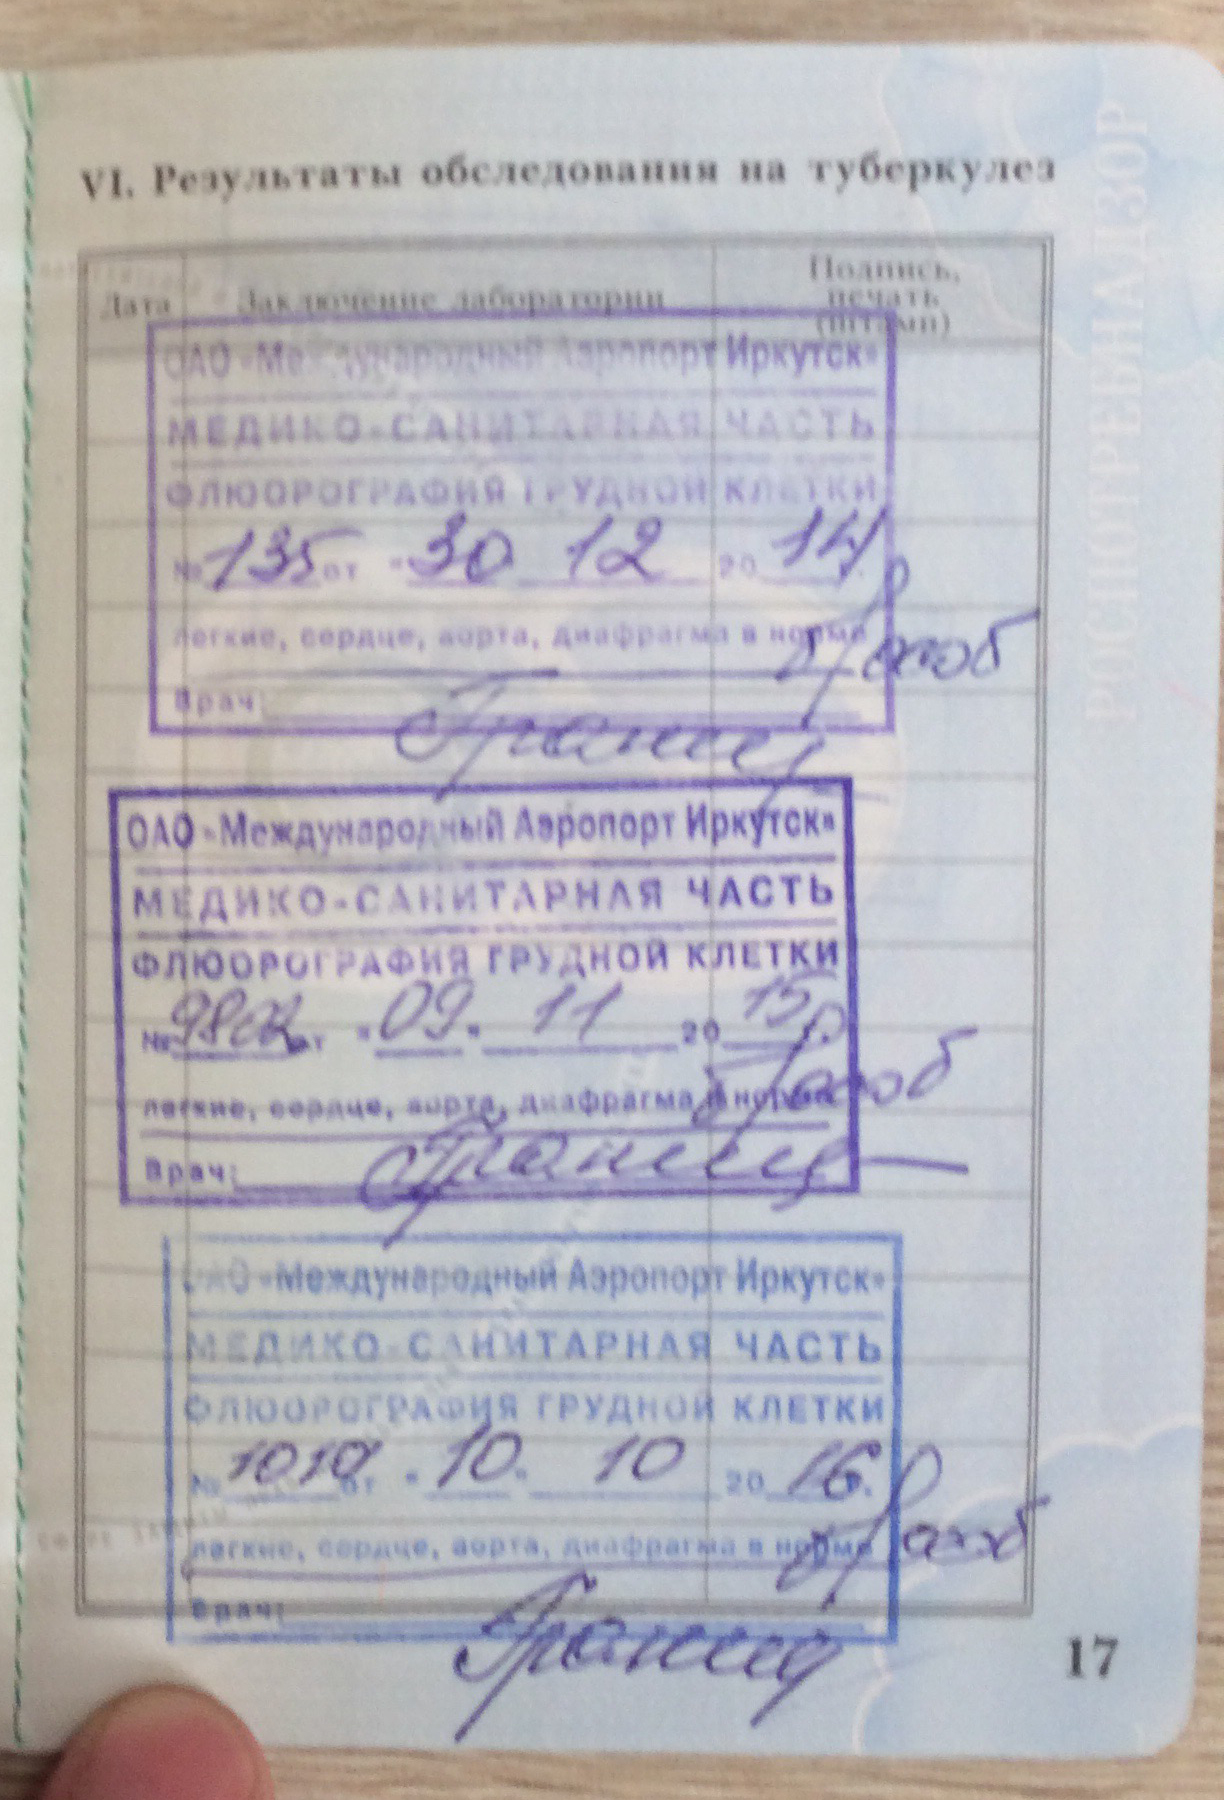 VI. Результаты обследования на туберкулез
Дата Заключение лаборатории Подпись, печать (штамп)
ОАО «Международный Аэропорт Иркутск»
МЕДИКО-САНИТАРНАЯ ЧАСТЬ
ФЛЮОРОГРАФИЯ ГРУДНОЙ КЛЕТКИ
№ 135 от «30 12 2014
легкие, сердце, аорта, диафрагма в норме
Врач:
ОАО «Международный Аэропорт Иркутск»
МЕДИКО-САНИТАРНАЯ ЧАСТЬ
ФЛЮОРОГРАФИЯ ГРУДНОЙ КЛЕТКИ
№ от «09» 11 2015
легкие, сердце, аорта, диафрагма в норме
Врач:
ОАО «Международный Аэропорт Иркутск»
МЕДИКО-САНИТАРНАЯ ЧАСТЬ
ФЛЮОРОГРАФИЯ ГРУДНОЙ КЛЕТКИ
№ от «10» 10 2016.
легкие, сердце, аорта, диафрагма в норме
Врач:
17
РОСПОТРЕБНАДЗОР